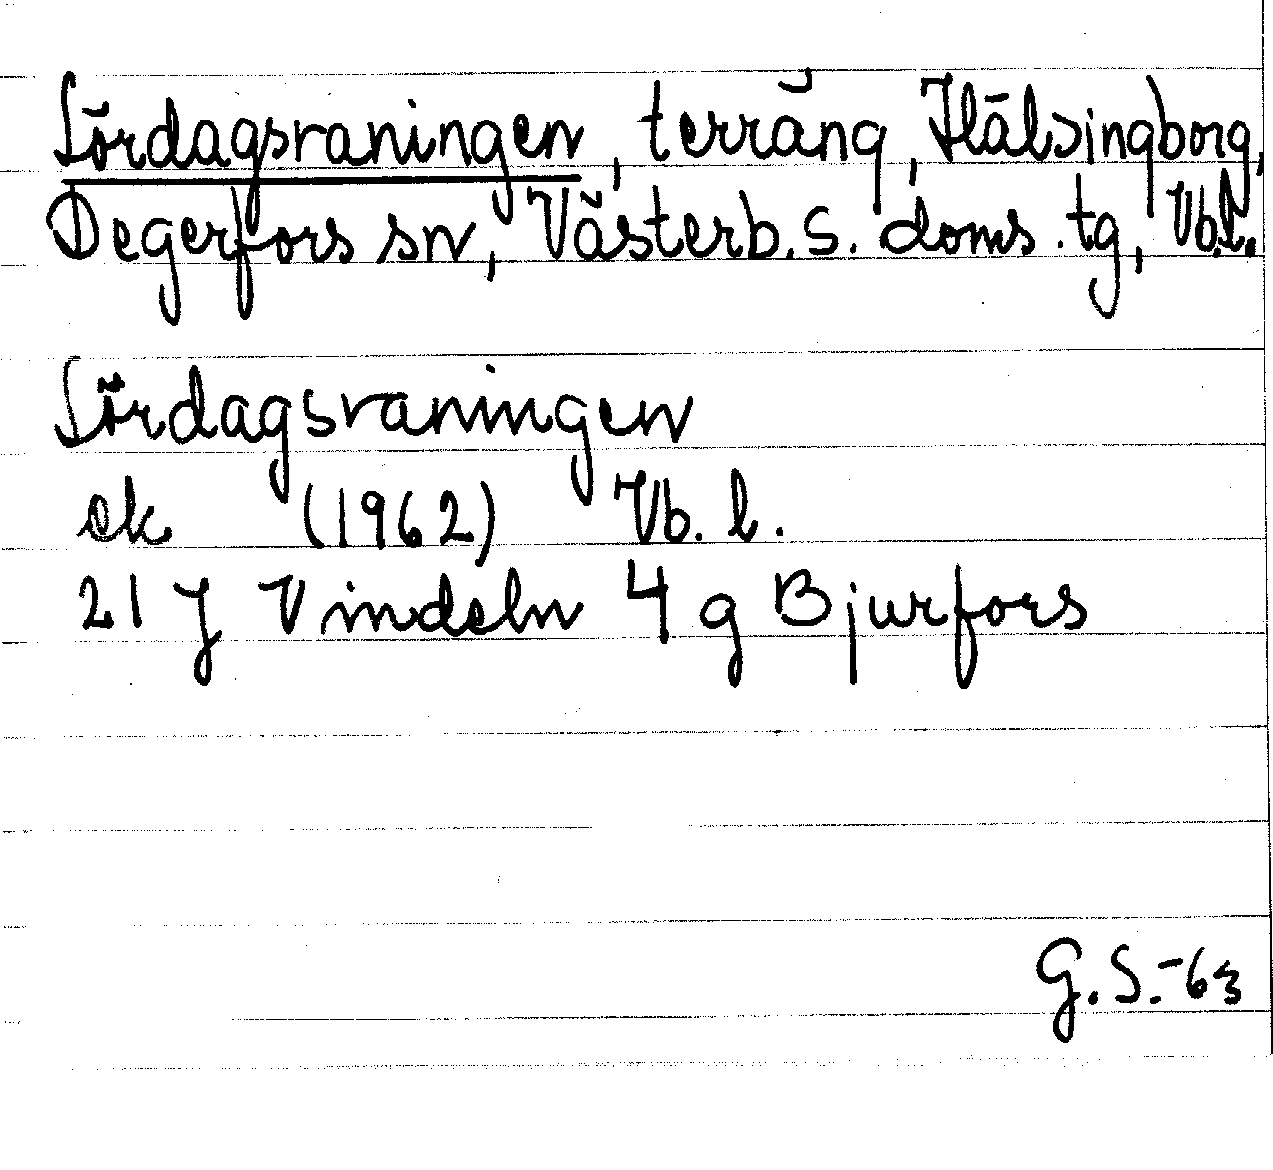 Lördagsraningen, terräng, Hälsingborg,
Degerfors sn, Västerb. s. doms. tg, Vb.l.
Lördagsraningen
ek (1962) Vb. l.
21 J Vindeln 4 g Bjurfors
G. S. -63